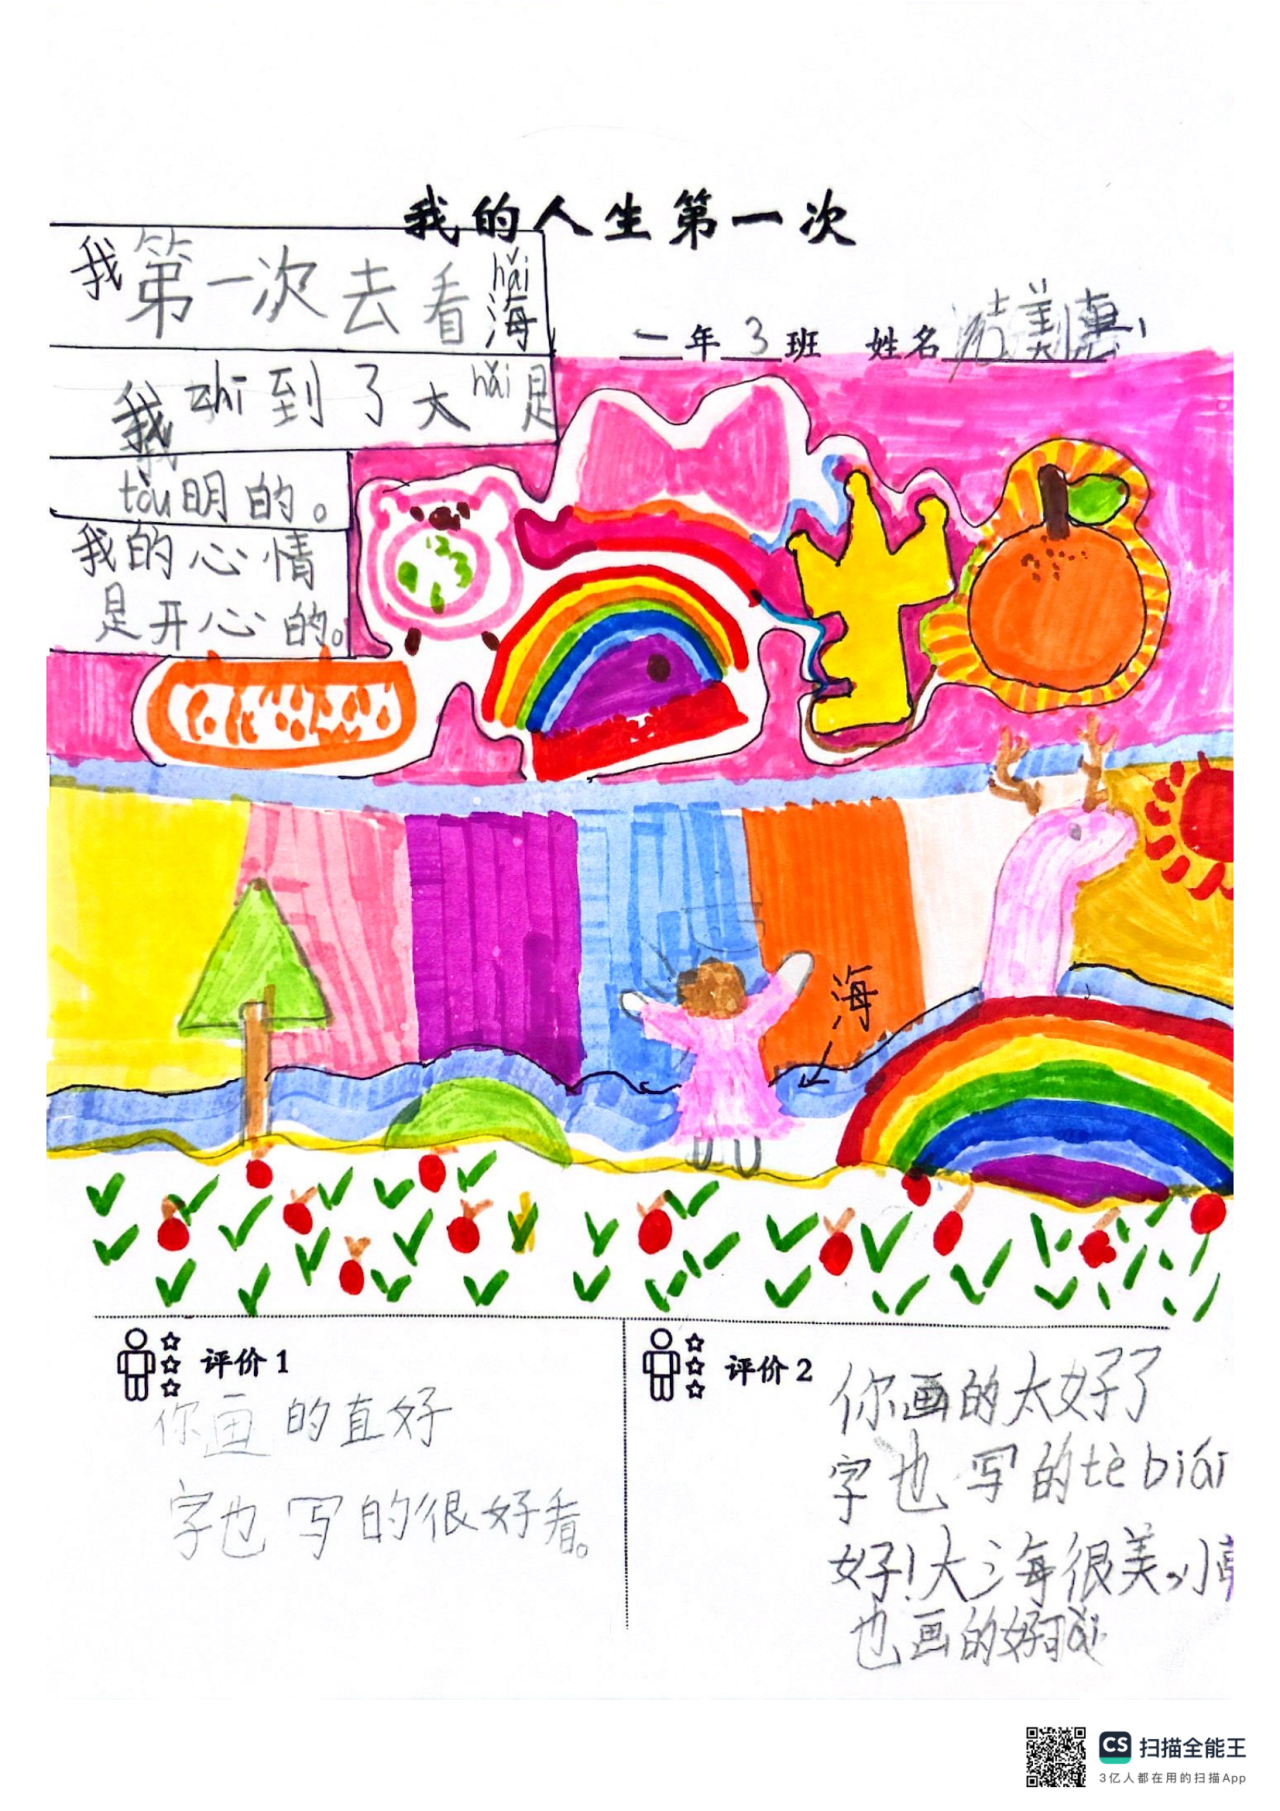 我的人生第一次
一年3班 姓名
我第一次去看海
hǎi
我zhī到了大hǎi是
tòu明的。
我的心情
是开心的。
海
评价1
你画的直好
字也写的很好看。
评价2
你画的太好了
字也写的tè biái
好!大海很美,小
也画的好
CS 扫描全能王
3亿人都在用的扫描App